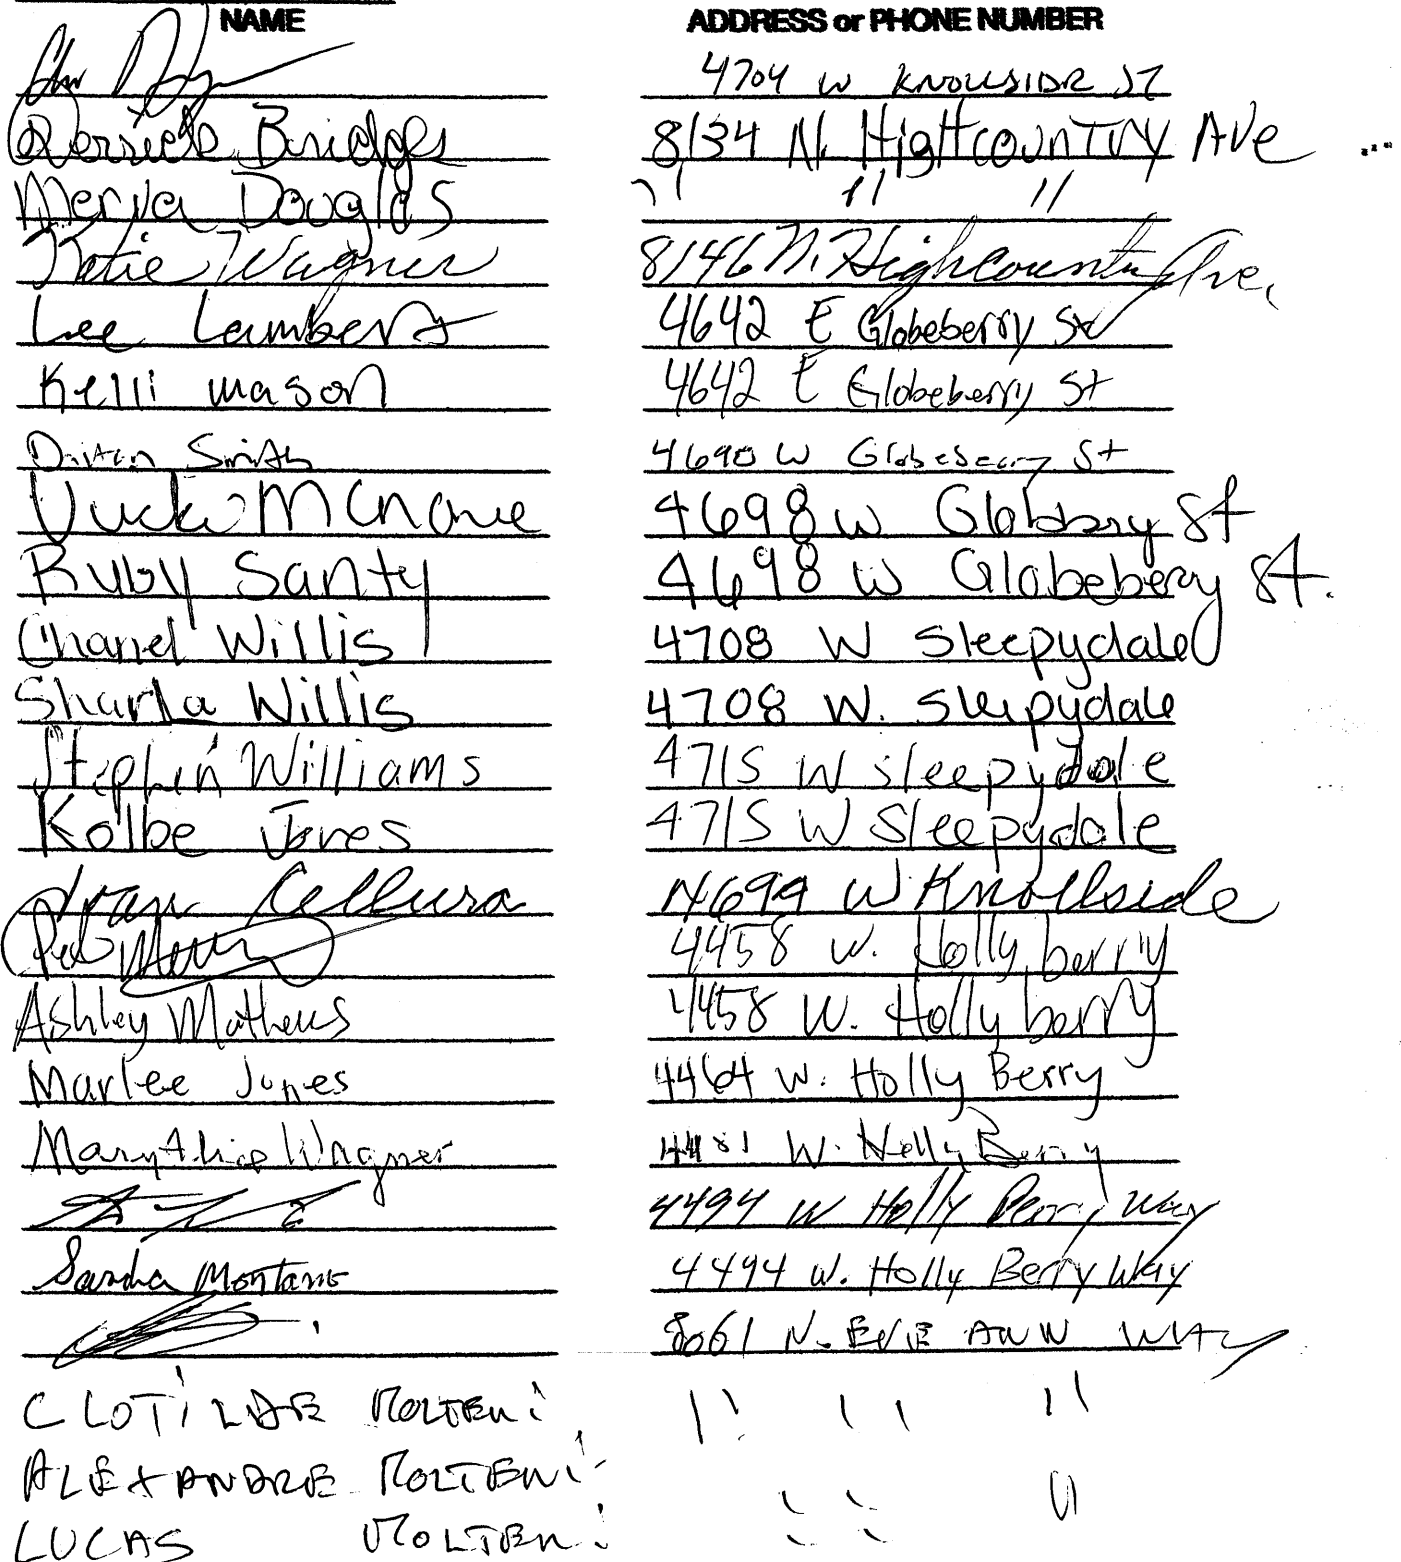 NAME ADDRESS or PHONE NUMBER
4704 W KNOLLSIDE ST
Derrick Bridges 8134 N. HighcounTry Ave
Merja Douglas " " "
Katie Wagner 8146 N. Highcountry Ave.
Lee Lambert 4642 E Globeberry St
Kelli mason 4642 E Globeberry St
Smith 4690 W Globeberry St
McNown 4698 W St
Ruby Santy 4698 W Globebery St.
Chanel Willis 4708 W Sleepydale
Sharla Willis 4708 W. Sleepydale
Stephen Williams 4715 W Sleepydale
Kolbe Jones 4715 W Sleepydale
Cellura 4699 W Knollside
4458 W. Holly berry
Ashley Mathews 4458 W. Holly berry
Marlee Jones 4464 W. Holly Berry
MaryAlice Wagner 4481 W. Holly Berry
4494 W Holly Berry Way
Sandra Montano 4494 W. Holly Berry Way
8061 N. EVE ANN WAY
CLOTILDE MOLTENi " " "
ALEXANDRE MOLTENi " "
LUCAS MOLTENi